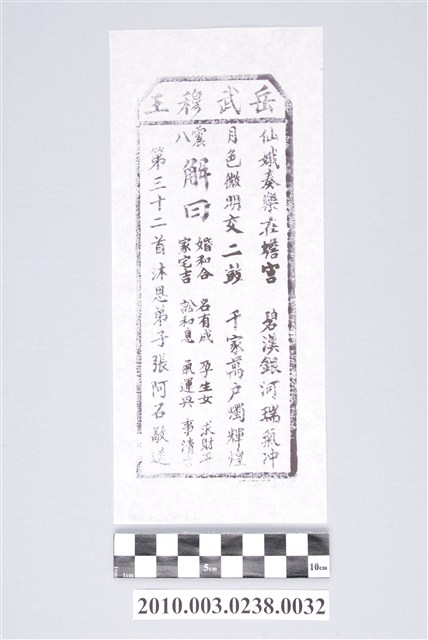 岳武穆王
仙娥奏樂在蟾宮　碧漢銀河瑞氣冲
月色微明交二鼓　千家萬戶燭輝煌
震八
解曰
婚和合　名有成　孕生女　求財平
家宅吉　訟和息　氣運興　事清吉
第三十二首沐恩弟子張阿石敬送
1cm 5cm 10cm
2010.003.0238.0032